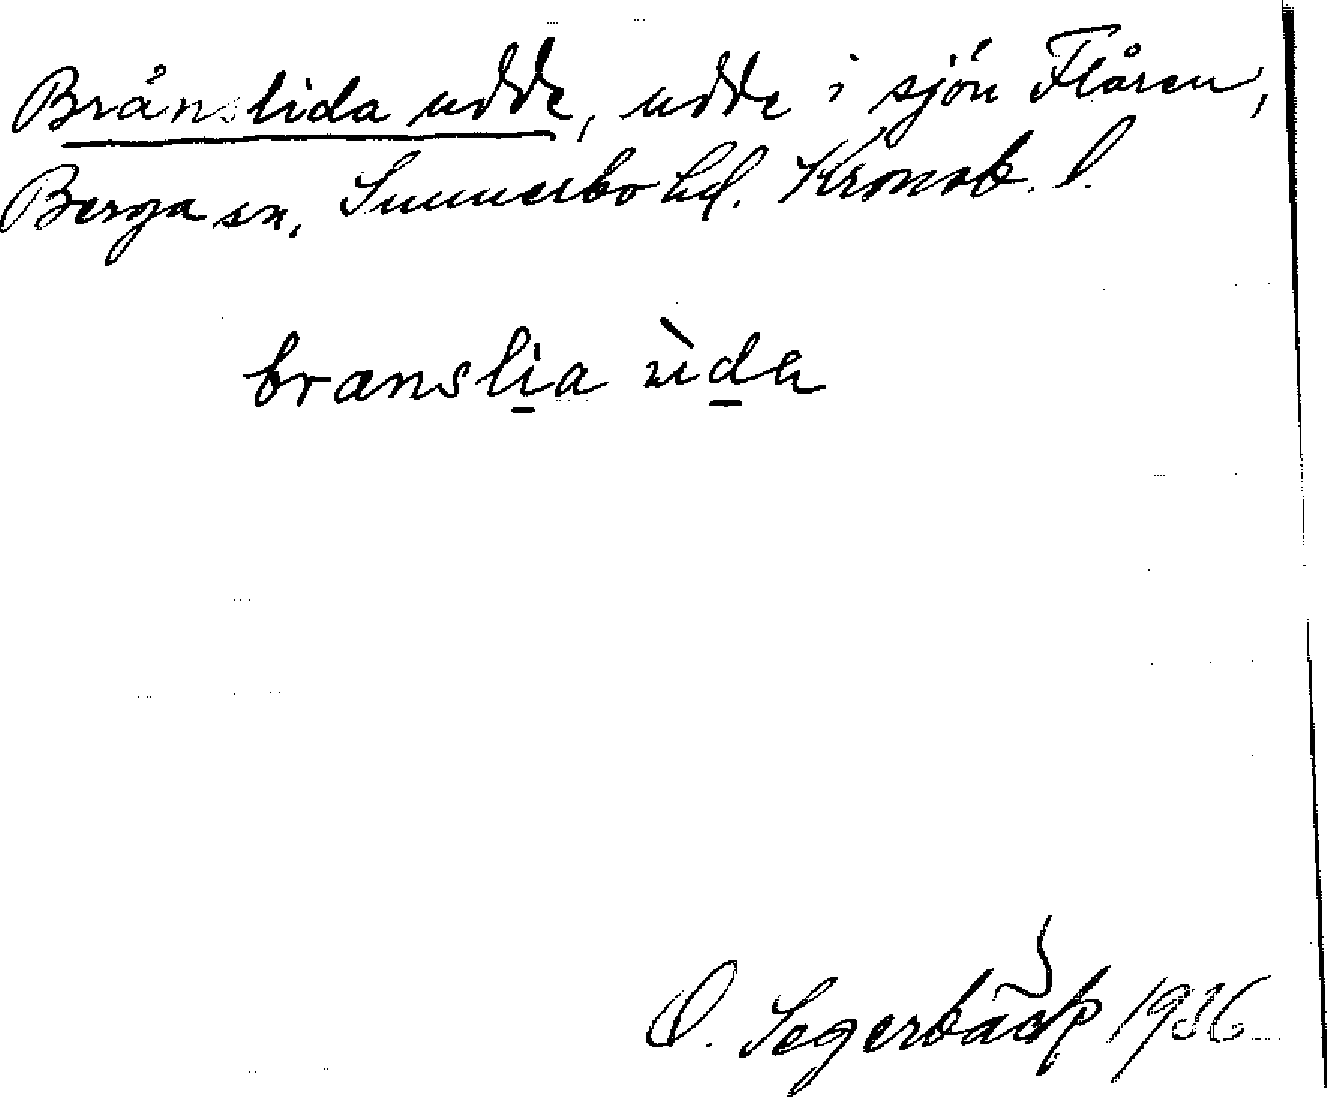 Brånslida udde, udde i sjön Flåren,
Berga sn, Sunnerbo hd. Kronob. l.
branslia ùda
O. Segerbäck 1936